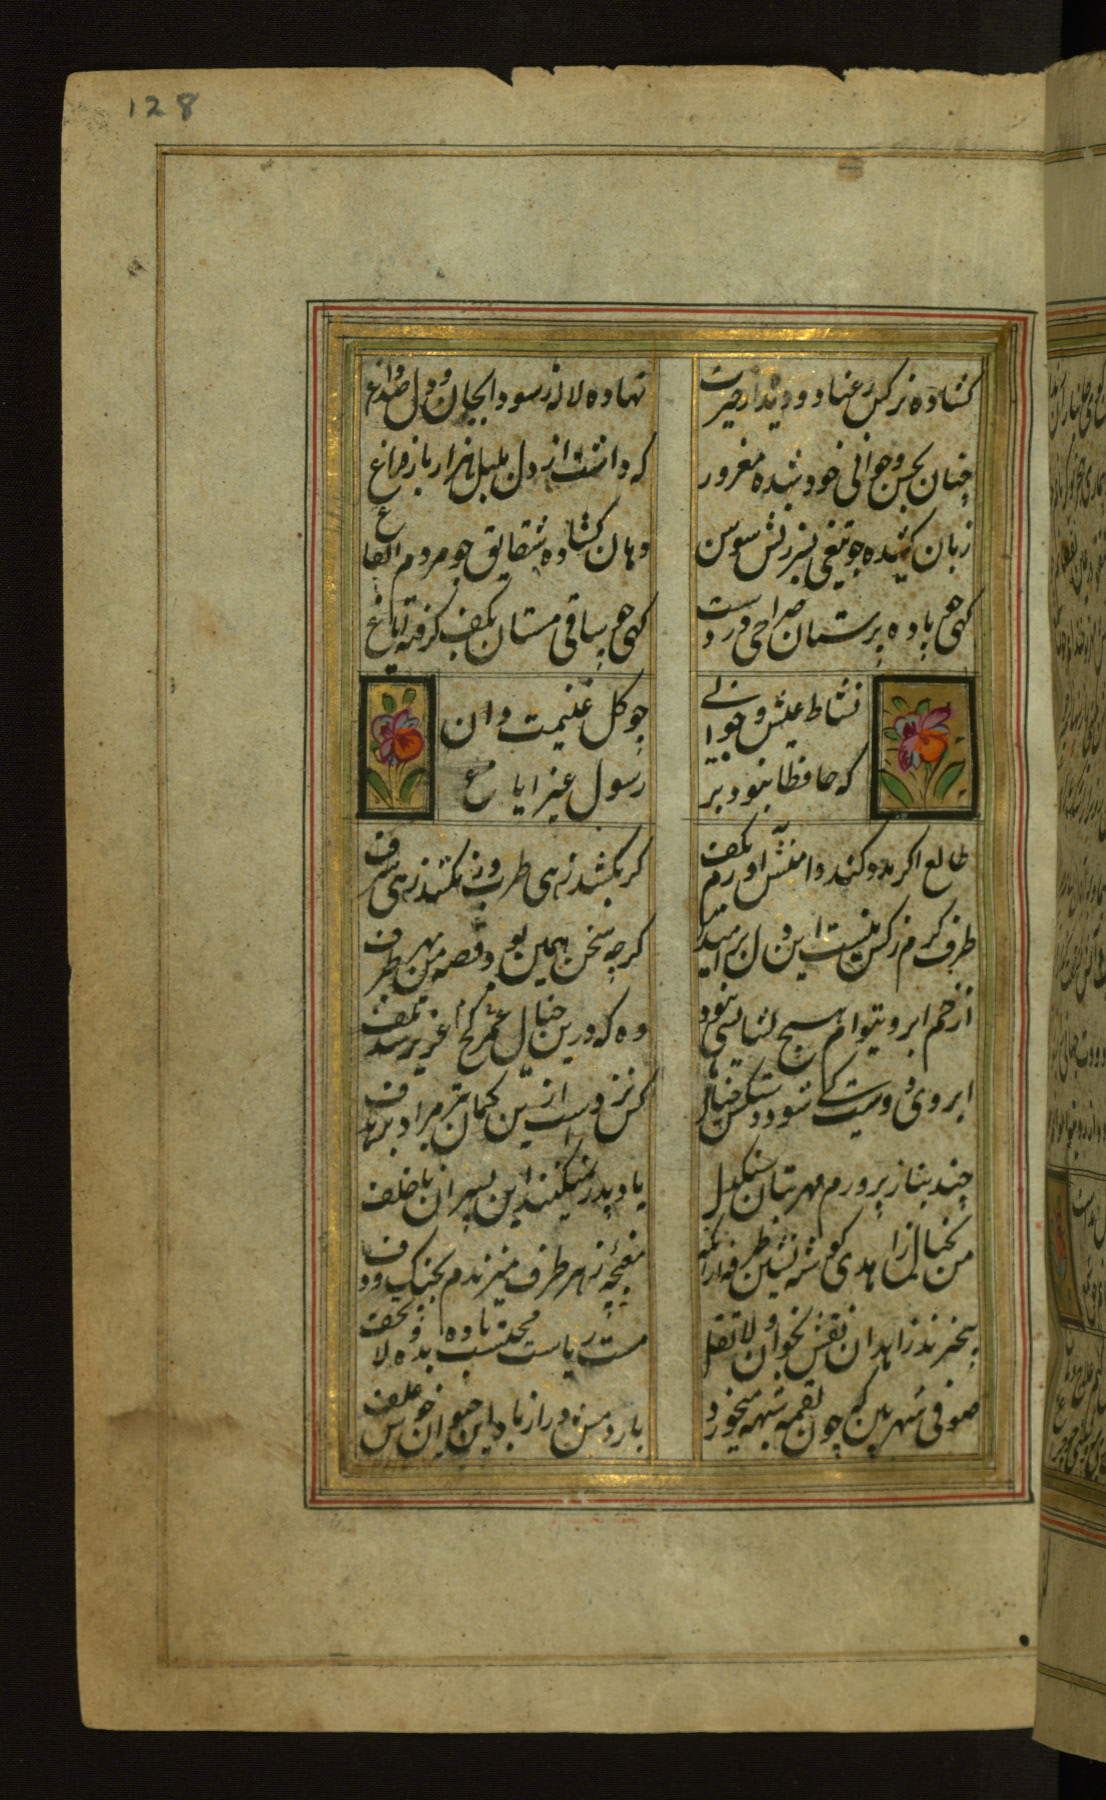 128
کشاده نرکس رعنا دو دیده از حیرت
نهاده لاله ز سودا بجان و دل صد داغ
چنان بحسن و جوانی خود شده مغرور
که داشت از دل بلبل هزار باز فراغ
زبان کشیده چو تیغی بسرزنش سوسن
دهان کشاده شقایق چو مردم ایغاغ
کهی چو باده پرستان صراحی در دست
کهی چو ساقی مستان بکف کرفته ایاغ
نشاط عیش و جوانی
چو کل غنیمت دان
که حافظا نبود بر
رسول غیر ابلاغ
طالع اکر مدد کند دامنش آورم بکف
کر بکشد زهی طرب ور بکشد زهی شرف
طرف کرم ز کس نبست این دل پر امید
کرچه سخن همین بود قصه من بهر طرف
از خم ابروی توام هیچ کشایشی نبود
وه که درین خیال کج عمر عزیز شد تلف
ابروی دوست کی شود دستکش خیال
کس نزدست ازین کمان تیر مراد بر هدف
چند بناز پرورم مهر بتان سنکدل
یاد پدر نمیکنند این پسران ناخلف
من بخیال زاهدی کوشه نشین و طرفه آنکه
مغبچهٔ ز هر طرف میزندم بچنک و دف
بیخبرند زاهدان نقش بخوان و لا تقل
مست ریاست محتسب باده بده و لا تخف
صوفی شهر بین که چون لقمه شبهه میخورد
پاردمش دراز باد این حیوان خوش علف